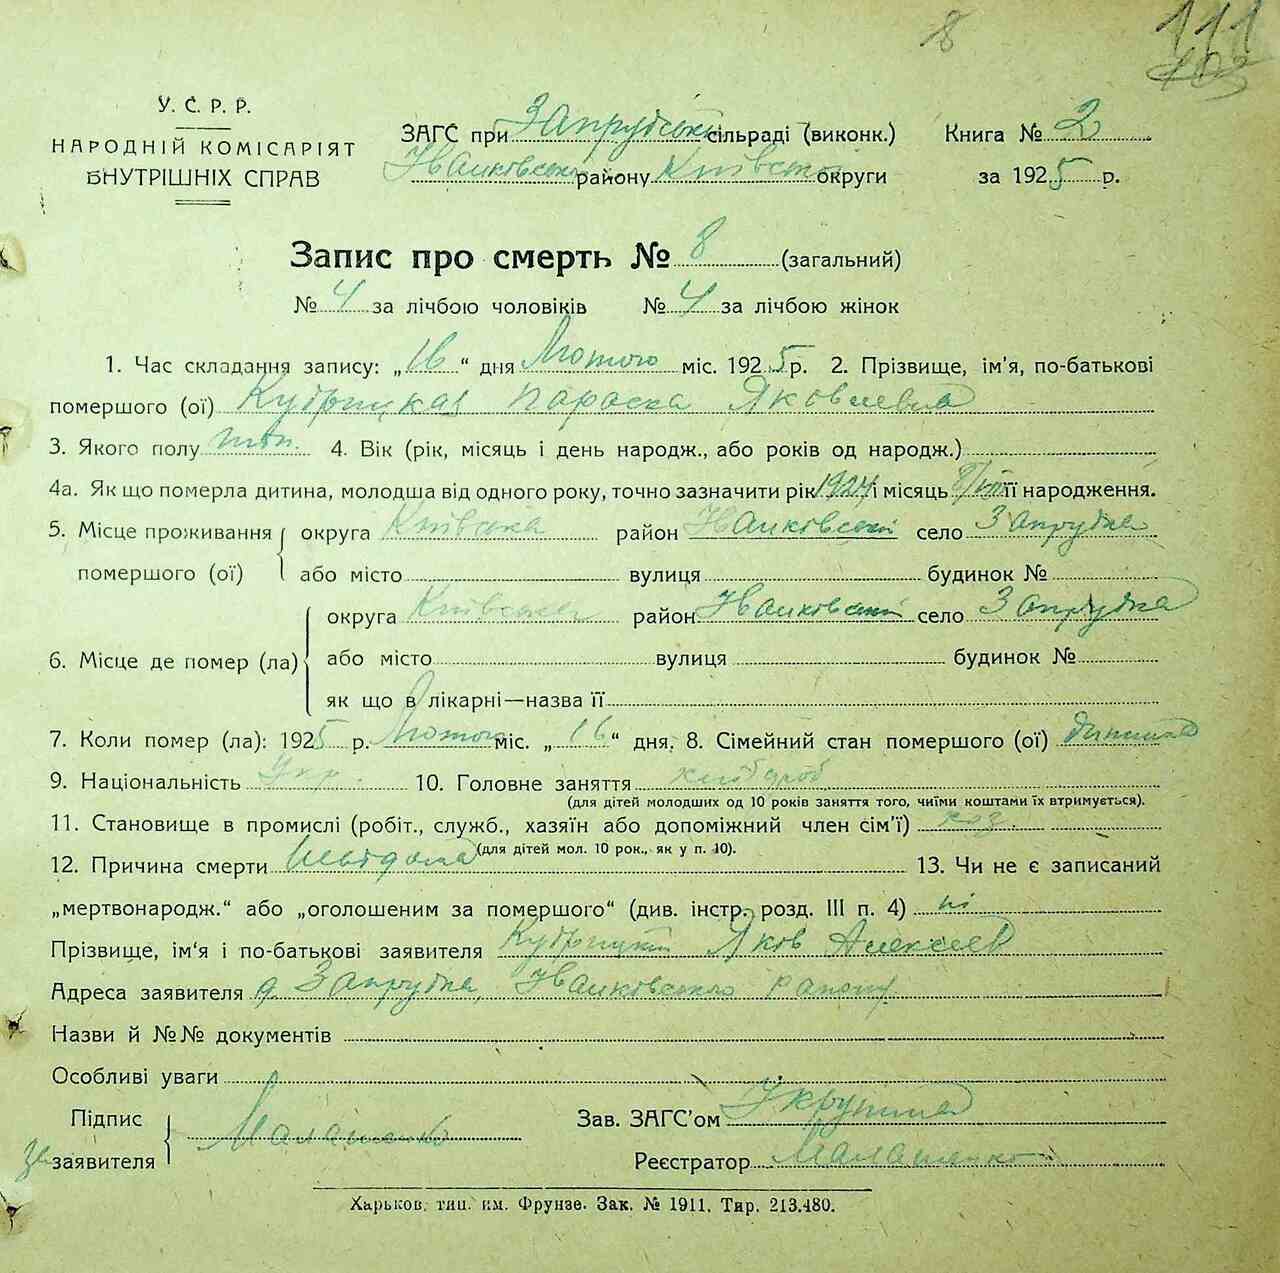 8 111
103
У. С. Р. Р.
НАРОДНІЙ КОМІСАРІЯТ
ВНУТРІШНІХ СПРАВ
ЗАГС при Запрудській сільраді (виконк.) Книга № 2
Іванківського району Київської округи за 1925 р.
Запис про смерть № 8 (загальний)
№ 4 за лічбою чоловіків № 4 за лічбою жінок
1. Час складання запису: „16“ дня Лютого міс. 1925 р. 2. Прізвище, ім'я, по-батькові
помершого (ої) Кудрицкая Параска Яковлевна
3. Якого полу жін. 4. Вік (рік, місяць і день народж., або років од народж.)
4а. Як що померла дитина, молодша від одного року, точно зазначити рік 1924 і місяць її народження.
5. Місце проживання округа Київська район Іванківський село Запрудка
помершого (ої) або місто вулиця будинок №
округа Київська район Іванківський село Запрудка
6. Місце де помер (ла) або місто вулиця будинок №
як що в лікарні—назва її
7. Коли помер (ла): 1925 р. Лютого міс. „16“ дня. 8. Сімейний стан помершого (ої) дитина
9. Національність Укр. 10. Головне заняття хлібороб
(для дітей молодших од 10 років заняття того, чиїми коштами їх втримується).
11. Становище в промислі (робіт., служб., хазяїн або допоміжний член сім'ї) хаз.
(для дітей мол. 10 рок., як у п. 10).
12. Причина смерти 13. Чи не є записаний
„мертвонародж.“ або „оголошеним за помершого“ (див. інстр. розд. III п. 4) ні
Прізвище, ім'я і по-батькові заявителя Кудрицкий Яков Алексеев
Адреса заявителя д. Запрудка, Іванківського району
Назви й №№ документів
Особливі уваги
Підпис Малашенко Зав. ЗАГС'ом
за заявителя Реєстратор Малашенко
Харьков, тип. им. Фрунзе. Зак. № 1911. Тир. 213.480.